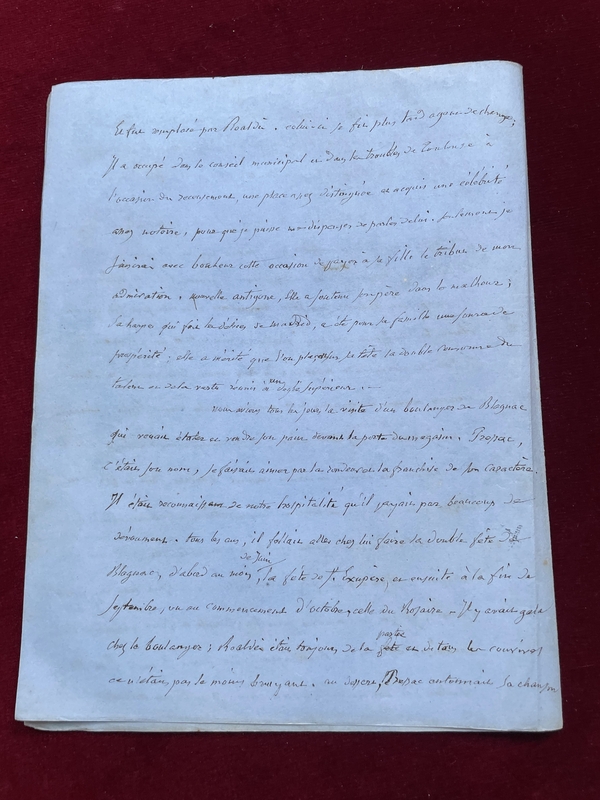 Et fut remplacé par Roaldès. celui-ci se fit plus tard agent de change;
Il a occupé dans le conseil municipal et dans les troubles de Toulouse à
l'occasion du recensement, une place assez distinguée et acquis une célébrité
assez notoire, pour que je puisse me dispenser de parler de lui. Seulement je
saisirai avec bonheur cette occasion de payer à sa fille le tribut de mon
admiration. nouvelle antigone, Elle a soutenu son père dans le malheur;
Sa harpe qui fait les délices de, a été pour sa famille une source de
prospérité; elle a mérité que l'on plaçat sur sa tête la double couronne du
talent et de la vertu réunis à un degré supérieur. —
nous avions tous les jours la visite d'un boulanger de Blagnac
qui venait étaler et vendre son pain devant la porte du magasin. Pressac,
c'était son nom, se faisait aimer par la rondeur et la franchise de son caractère.
Il était reconnaissant de notre hospitalité qu'il payait par beaucoup de
dévouement. tous les ans, il fallait aller chez lui faire la double fête de
Blagnac, d'abord au mois de Juin, la fête de St. Exupère, et ensuite à la fin de
Septembre, ou au commencement d'octobre, celle du Rosaire — Il y avait gala
chez le boulanger; Roaldès était toujours de la partie et de tous les convives
ce n'était pas le moins bruyant. au dessert, Pressac entonnait sa chanson